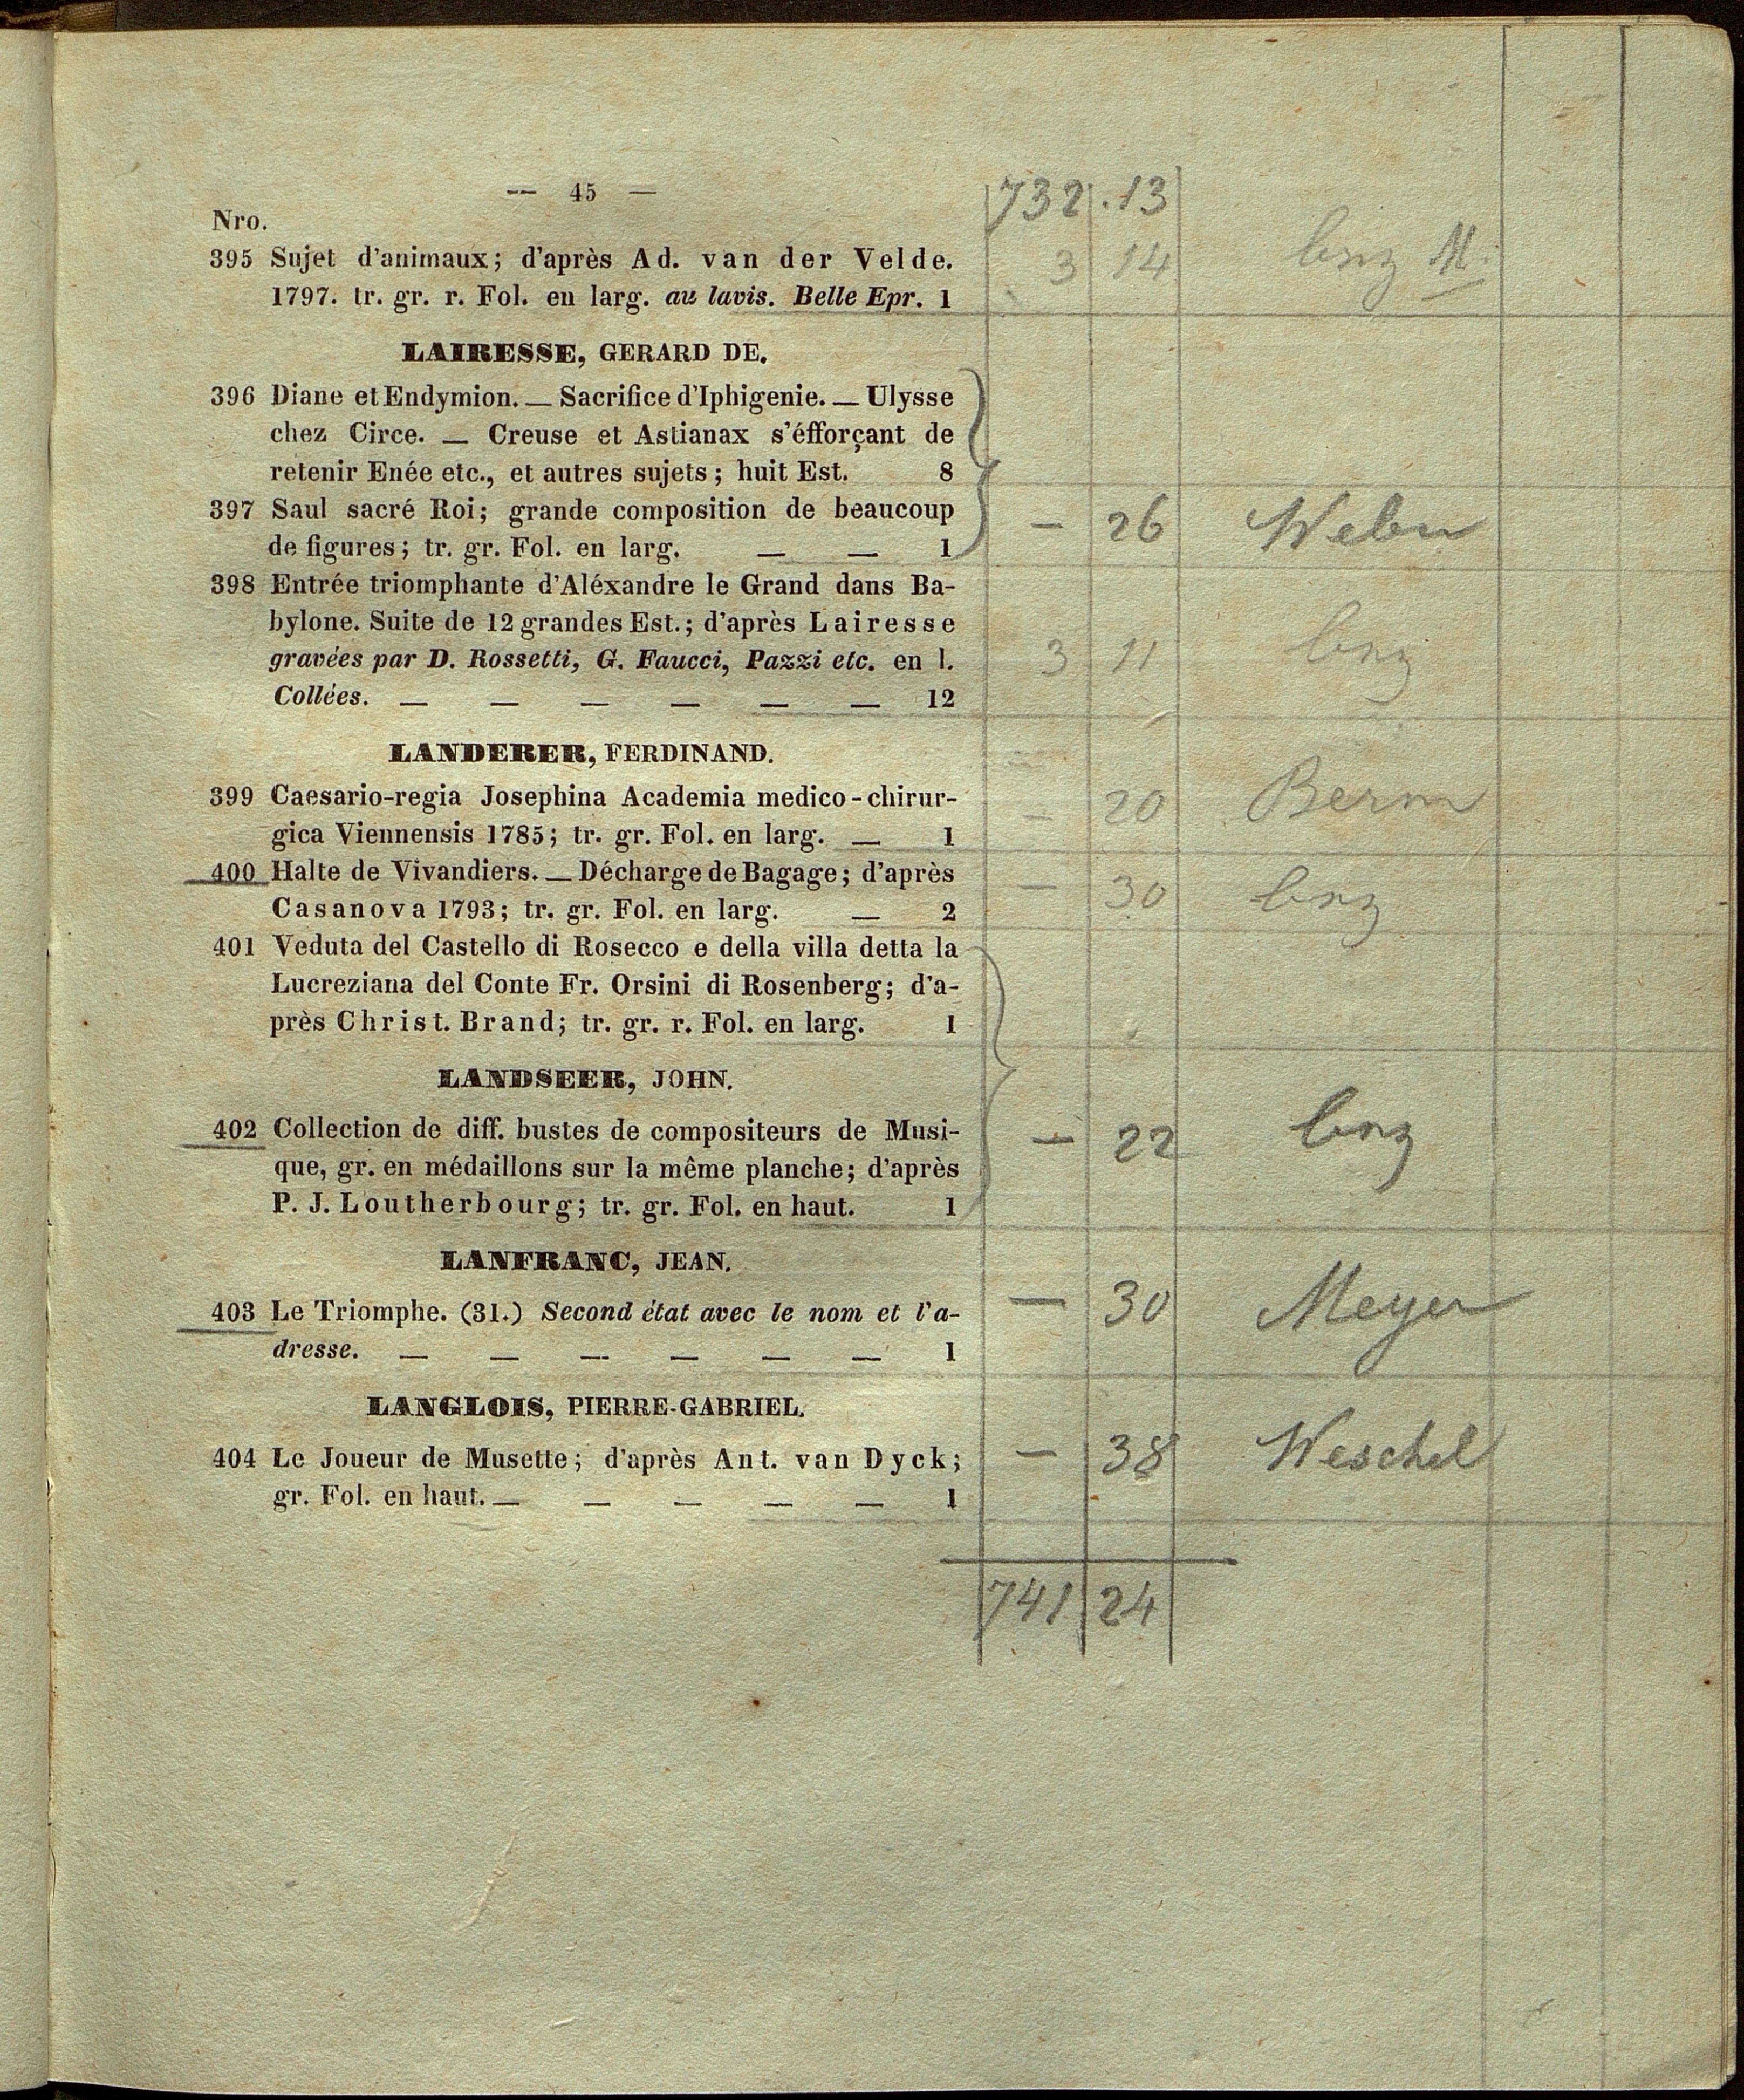 — 45 —
732 . 13
Nro.
395 Sujet d'animaux; d'après Ad. van der Velde. 3 14
1797. tr. gr. r. Fol. en larg. au lavis. Belle Epr. 1
LAIRESSE, GERARD DE.
396 Diane et Endymion. — Sacrifice d'Iphigenie. — Ulysse
chez Circe. — Creuse et Astianax s'éfforçant de
retenir Enée etc., et autres sujets; huit Est. 8
397 Saul sacré Roi; grande composition de beaucoup — 26 Weber
de figures; tr. gr. Fol. en larg. — — 1
398 Entrée triomphante d'Aléxandre le Grand dans Ba-
bylone. Suite de 12 grandes Est.; d'après Lairesse
gravées par D. Rossetti, G. Faucci, Pazzi etc. en l. 3 11
Collées. — — — — — — 12
LANDERER, FERDINAND.
399 Caesario-regia Josephina Academia medico-chirur- — 20 Berm
gica Viennensis 1785; tr. gr. Fol. en larg. — 1
400 Halte de Vivandiers. — Décharge de Bagage; d'après — 30
Casanova 1793; tr. gr. Fol. en larg. — 2
401 Veduta del Castello di Rosecco e della villa detta la
Lucreziana del Conte Fr. Orsini di Rosenberg; d'a-
près Christ. Brand; tr. gr. r. Fol. en larg. 1
LANDSEER, JOHN.
402 Collection de diff. bustes de compositeurs de Musi- — 22
que, gr. en médaillons sur la même planche; d'après
P. J. Loutherbourg; tr. gr. Fol. en haut. 1
LANFRANC, JEAN.
403 Le Triomphe. (31.) Second état avec le nom et l'a- — 30 Meyer
dresse. — — — — — — 1
LANGLOIS, PIERRE-GABRIEL.
404 Le Joueur de Musette; d'après Ant. van Dyck; — 38 Weschel
gr. Fol. en haut. — — — — — 1
741 24